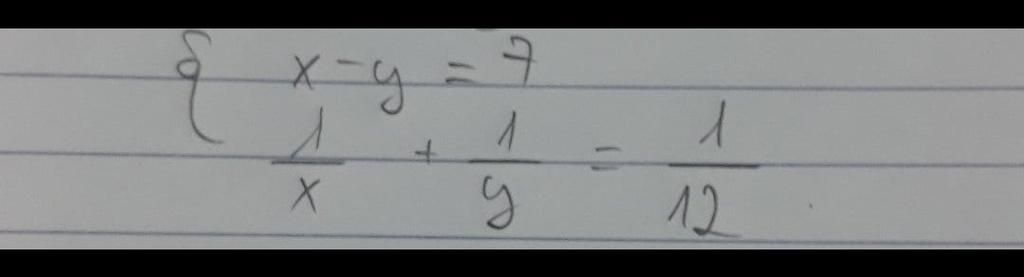 { x - y = 7
1/x + 1/y = 1/12